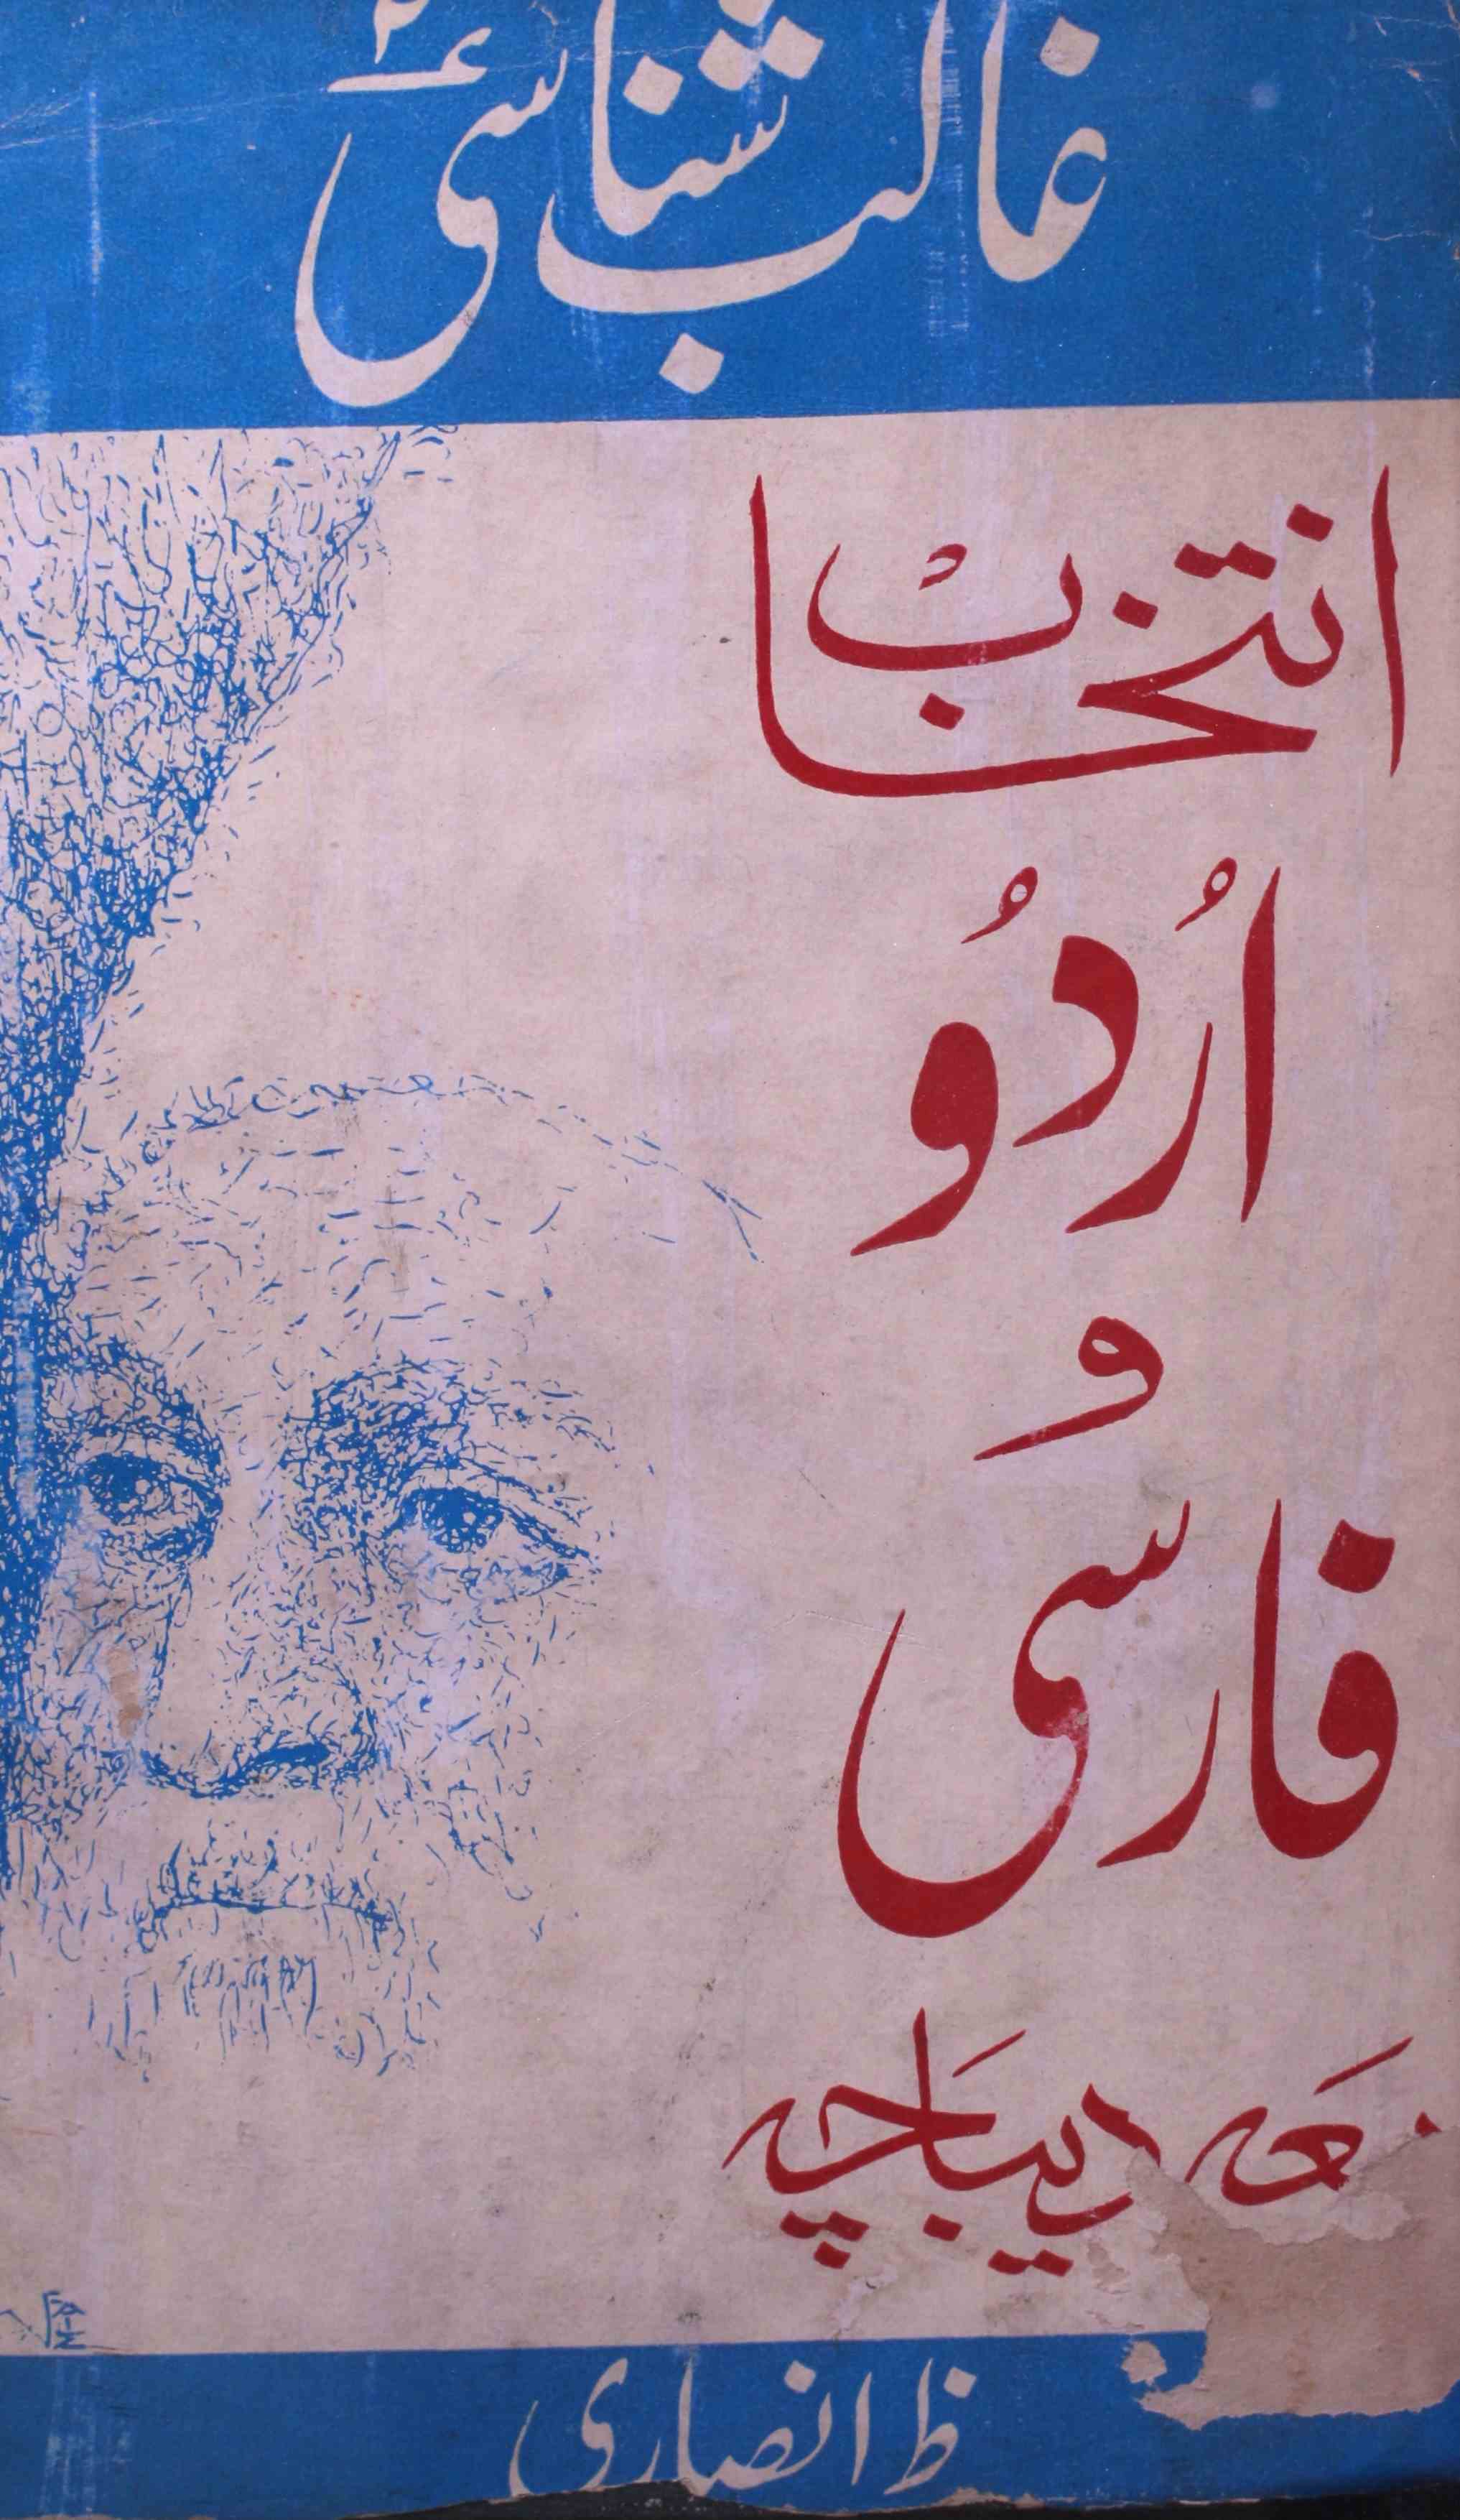 غالب شناسی ۲
انتخاب
اُردُو
و
فارسی
معہ دیباچہ
ظ انصاری